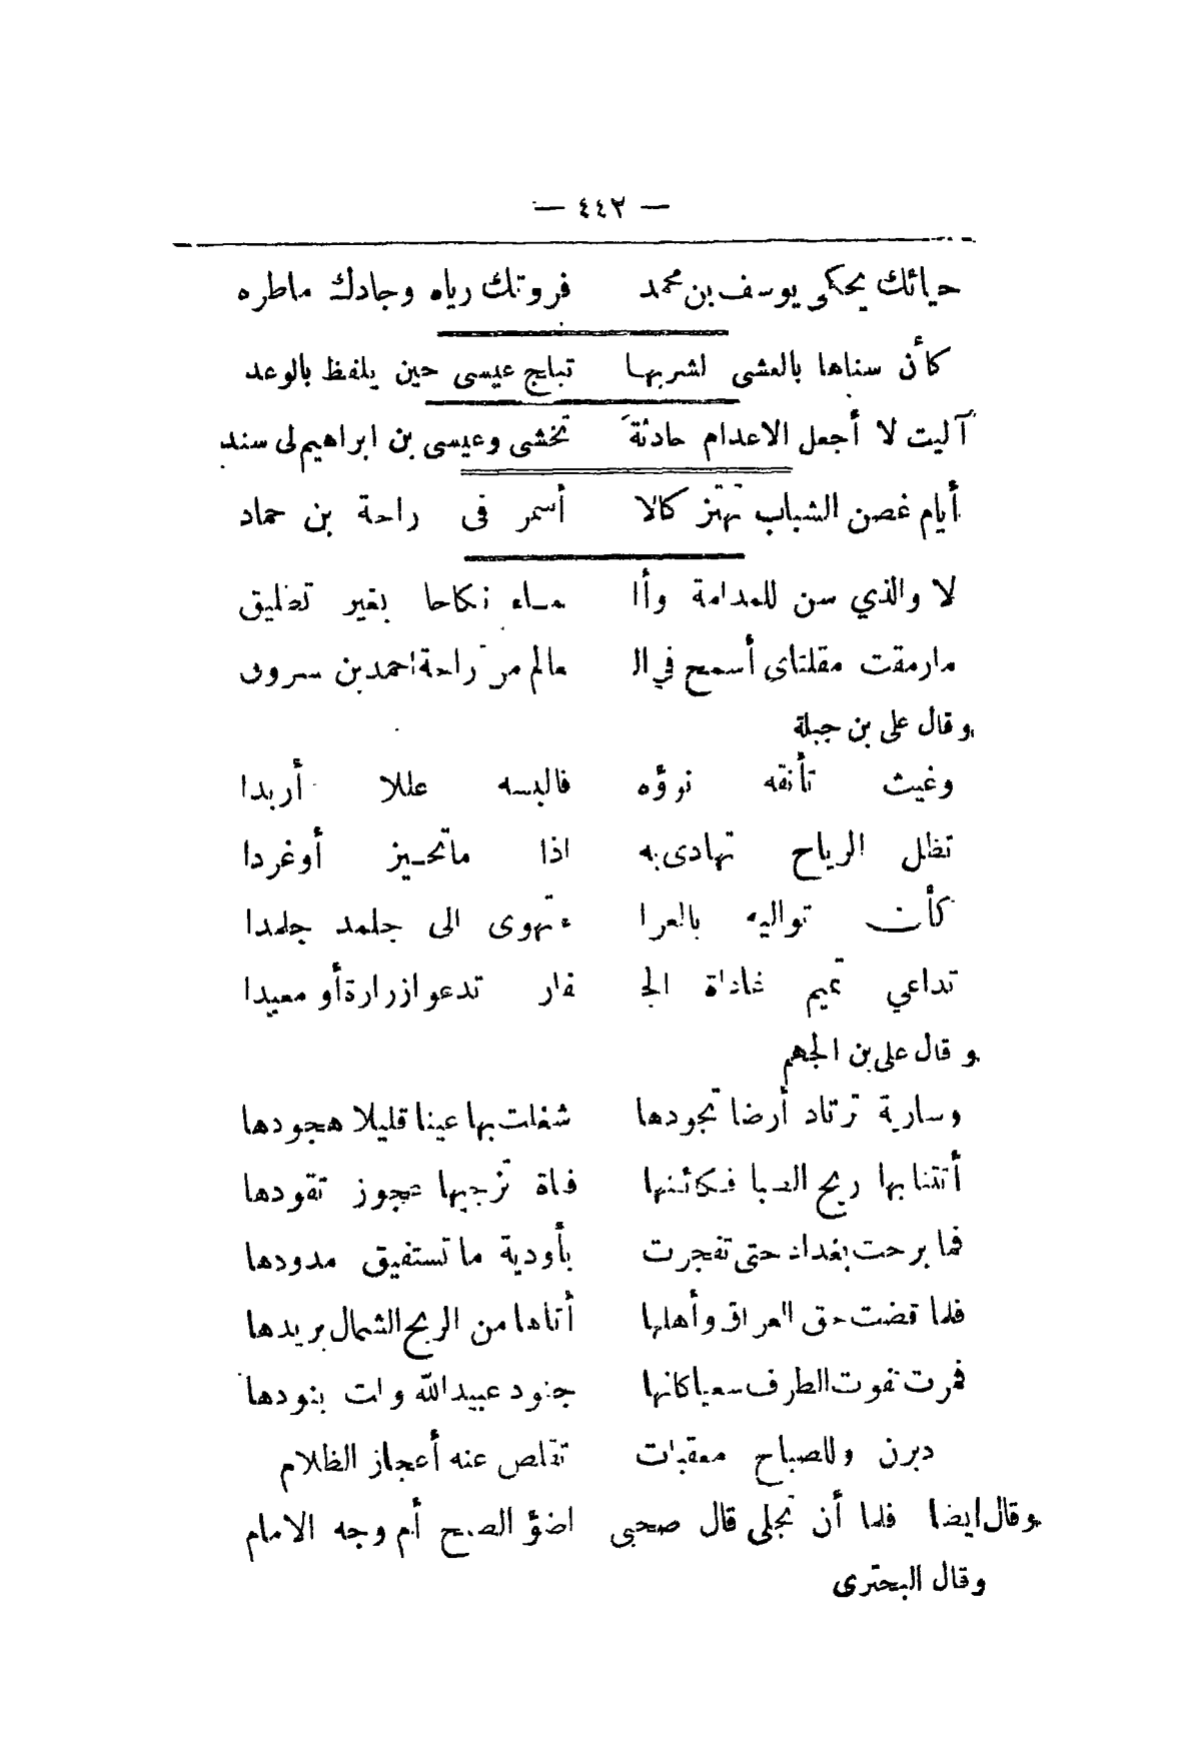 — ٤٤٢ —
حيائك يحكى يوسف بن محمد فروتك رياه وجادك ماطره
كأن سناها بالعشى لشربها تبلج عيسى حين يلفظ بالوعد
آليت لا أجعل الاعدام حادثة تخشى وعيسى بن ابراهيم لى سند
أيام غصن الشباب تهتز كالا أسمر فى راحة بن حماد
لا والذي سن للمدامة وأا مـاء نكاحا بغير تطليق
مارمقت مقلتاى أسمح في الـ عالم من راحة احمد بن سروق
وقال على بن جبلة
وغيث تأنقه نوؤه فالبسه عللا أربدا
تظل الرياح تهادى به اذا ماتحـيز أوغردا
كأن تواليه بالعرا ء تهوى الى جلمد جلمدا
تداعي تميم غداة الجـ فار تدعوا زرارة أو معبدا
وقال على بن الجهم
وسارية ترتاد أرضا تجودها شغلت بها عينا قليلا هجودها
أتتنا بها ريح الصبا فكأنها فتاة تزجيها عجوز تقودها
فما برحت بغداد حتى تفجرت بأودية ما تستفيق مدودها
فلما قضت حق العراق وأهلها أتاها من الريح الشمال بريدها
فمرت تفوت الطرف سعيا كانها جنود عبيد الله ولت بنودها
دبرن وللصباح معقبات تقلص عنه أعجاز الظلام
وقال ايضا فلما أن تجلى قال صحبى اضؤ الصبح أم وجه الامام
وقال البحترى